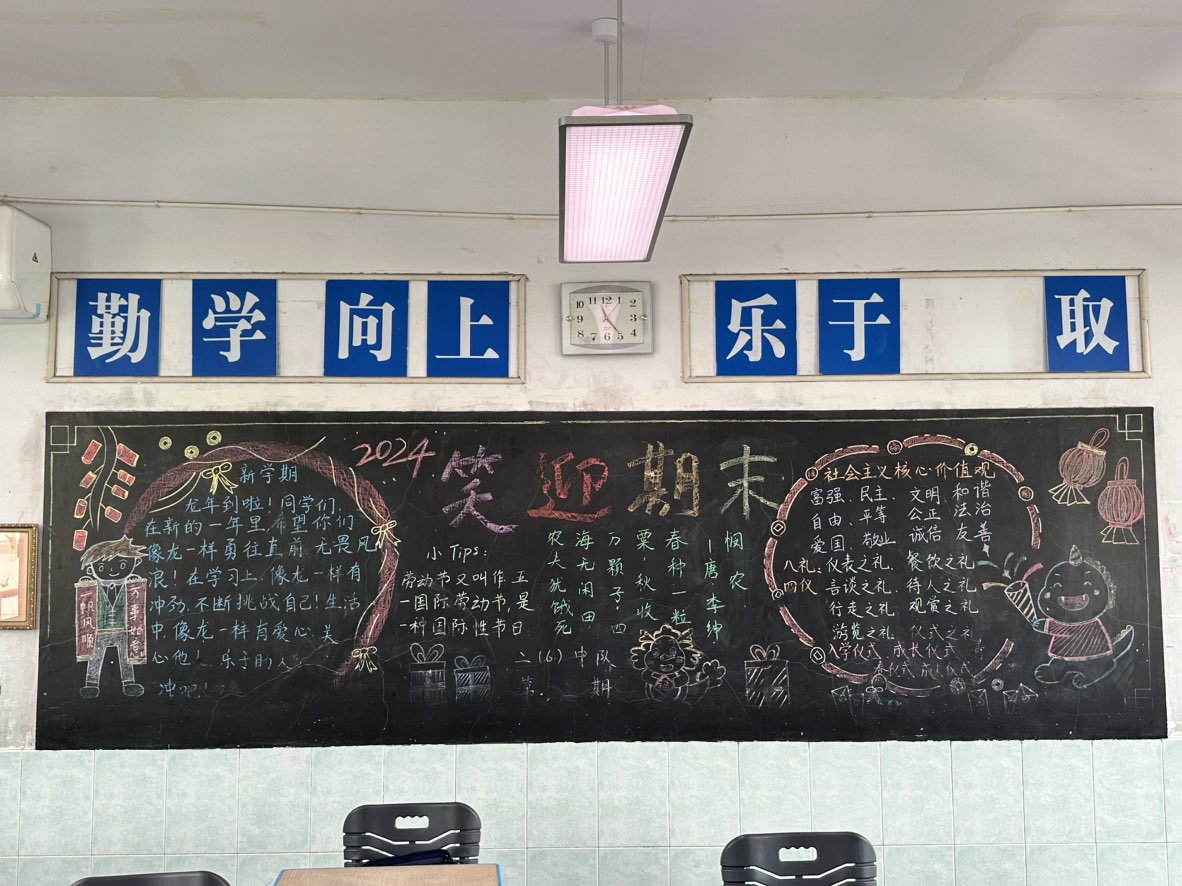 勤学向上
乐于 取
10 11 12 1 2
9 3
8 7 6 5 4
2024 笑迎期末
新学期
龙年到啦！同学们，
在新的一年里，希望你们
像龙一样勇往直前，无畏风
浪！在学习上，像龙一样有
冲劲，不断挑战自己！生活
中，像龙一样有爱心，关
心他！乐于助人
冲吧！
一帆风顺
万事如意
小Tips：
劳动节又叫作五
一国际劳动节，是
一种国际性节日
悯农
—唐李绅
春种一粒
粟，秋收
万颗子。四
海无闲田，
农夫犹饿死
二（6）中队
第 期
社会主义核心价值观
富强、民主、文明、和谐
自由、平等、公正、法治
爱国、敬业、诚信、友善
八礼：仪表之礼、餐饮之礼
四仪 言谈之礼、待人之礼
行走之礼、观赏之礼
游览之礼、仪式之礼
入学仪式 成长仪式
青春仪式 成人仪式